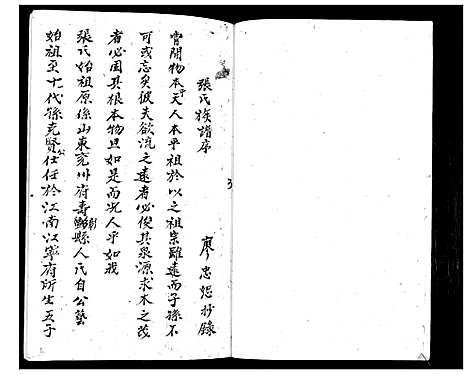 張氏族譜序
廖忠恕抄錄
嘗聞物本乎天人本乎祖於以之祖宗雖遠而子孫不
可或忘矣彼夫欲流之遠者必俊其泉源求木之茂
者必固其根本物且如是而況人乎如我
張氏始祖原係山東兗州府壽張縣人氏自公藝
始祖至十代孫克賢公仕任於江南江寧府所生五子